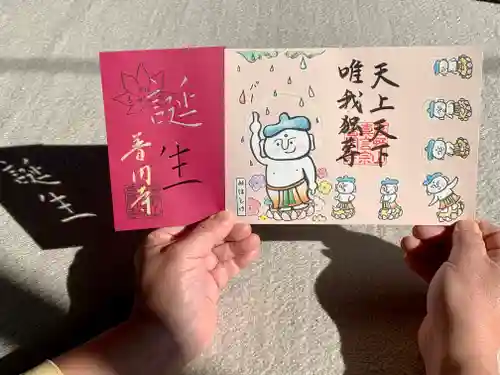 天上天下
唯我独尊
誕生
普円寺
誕生